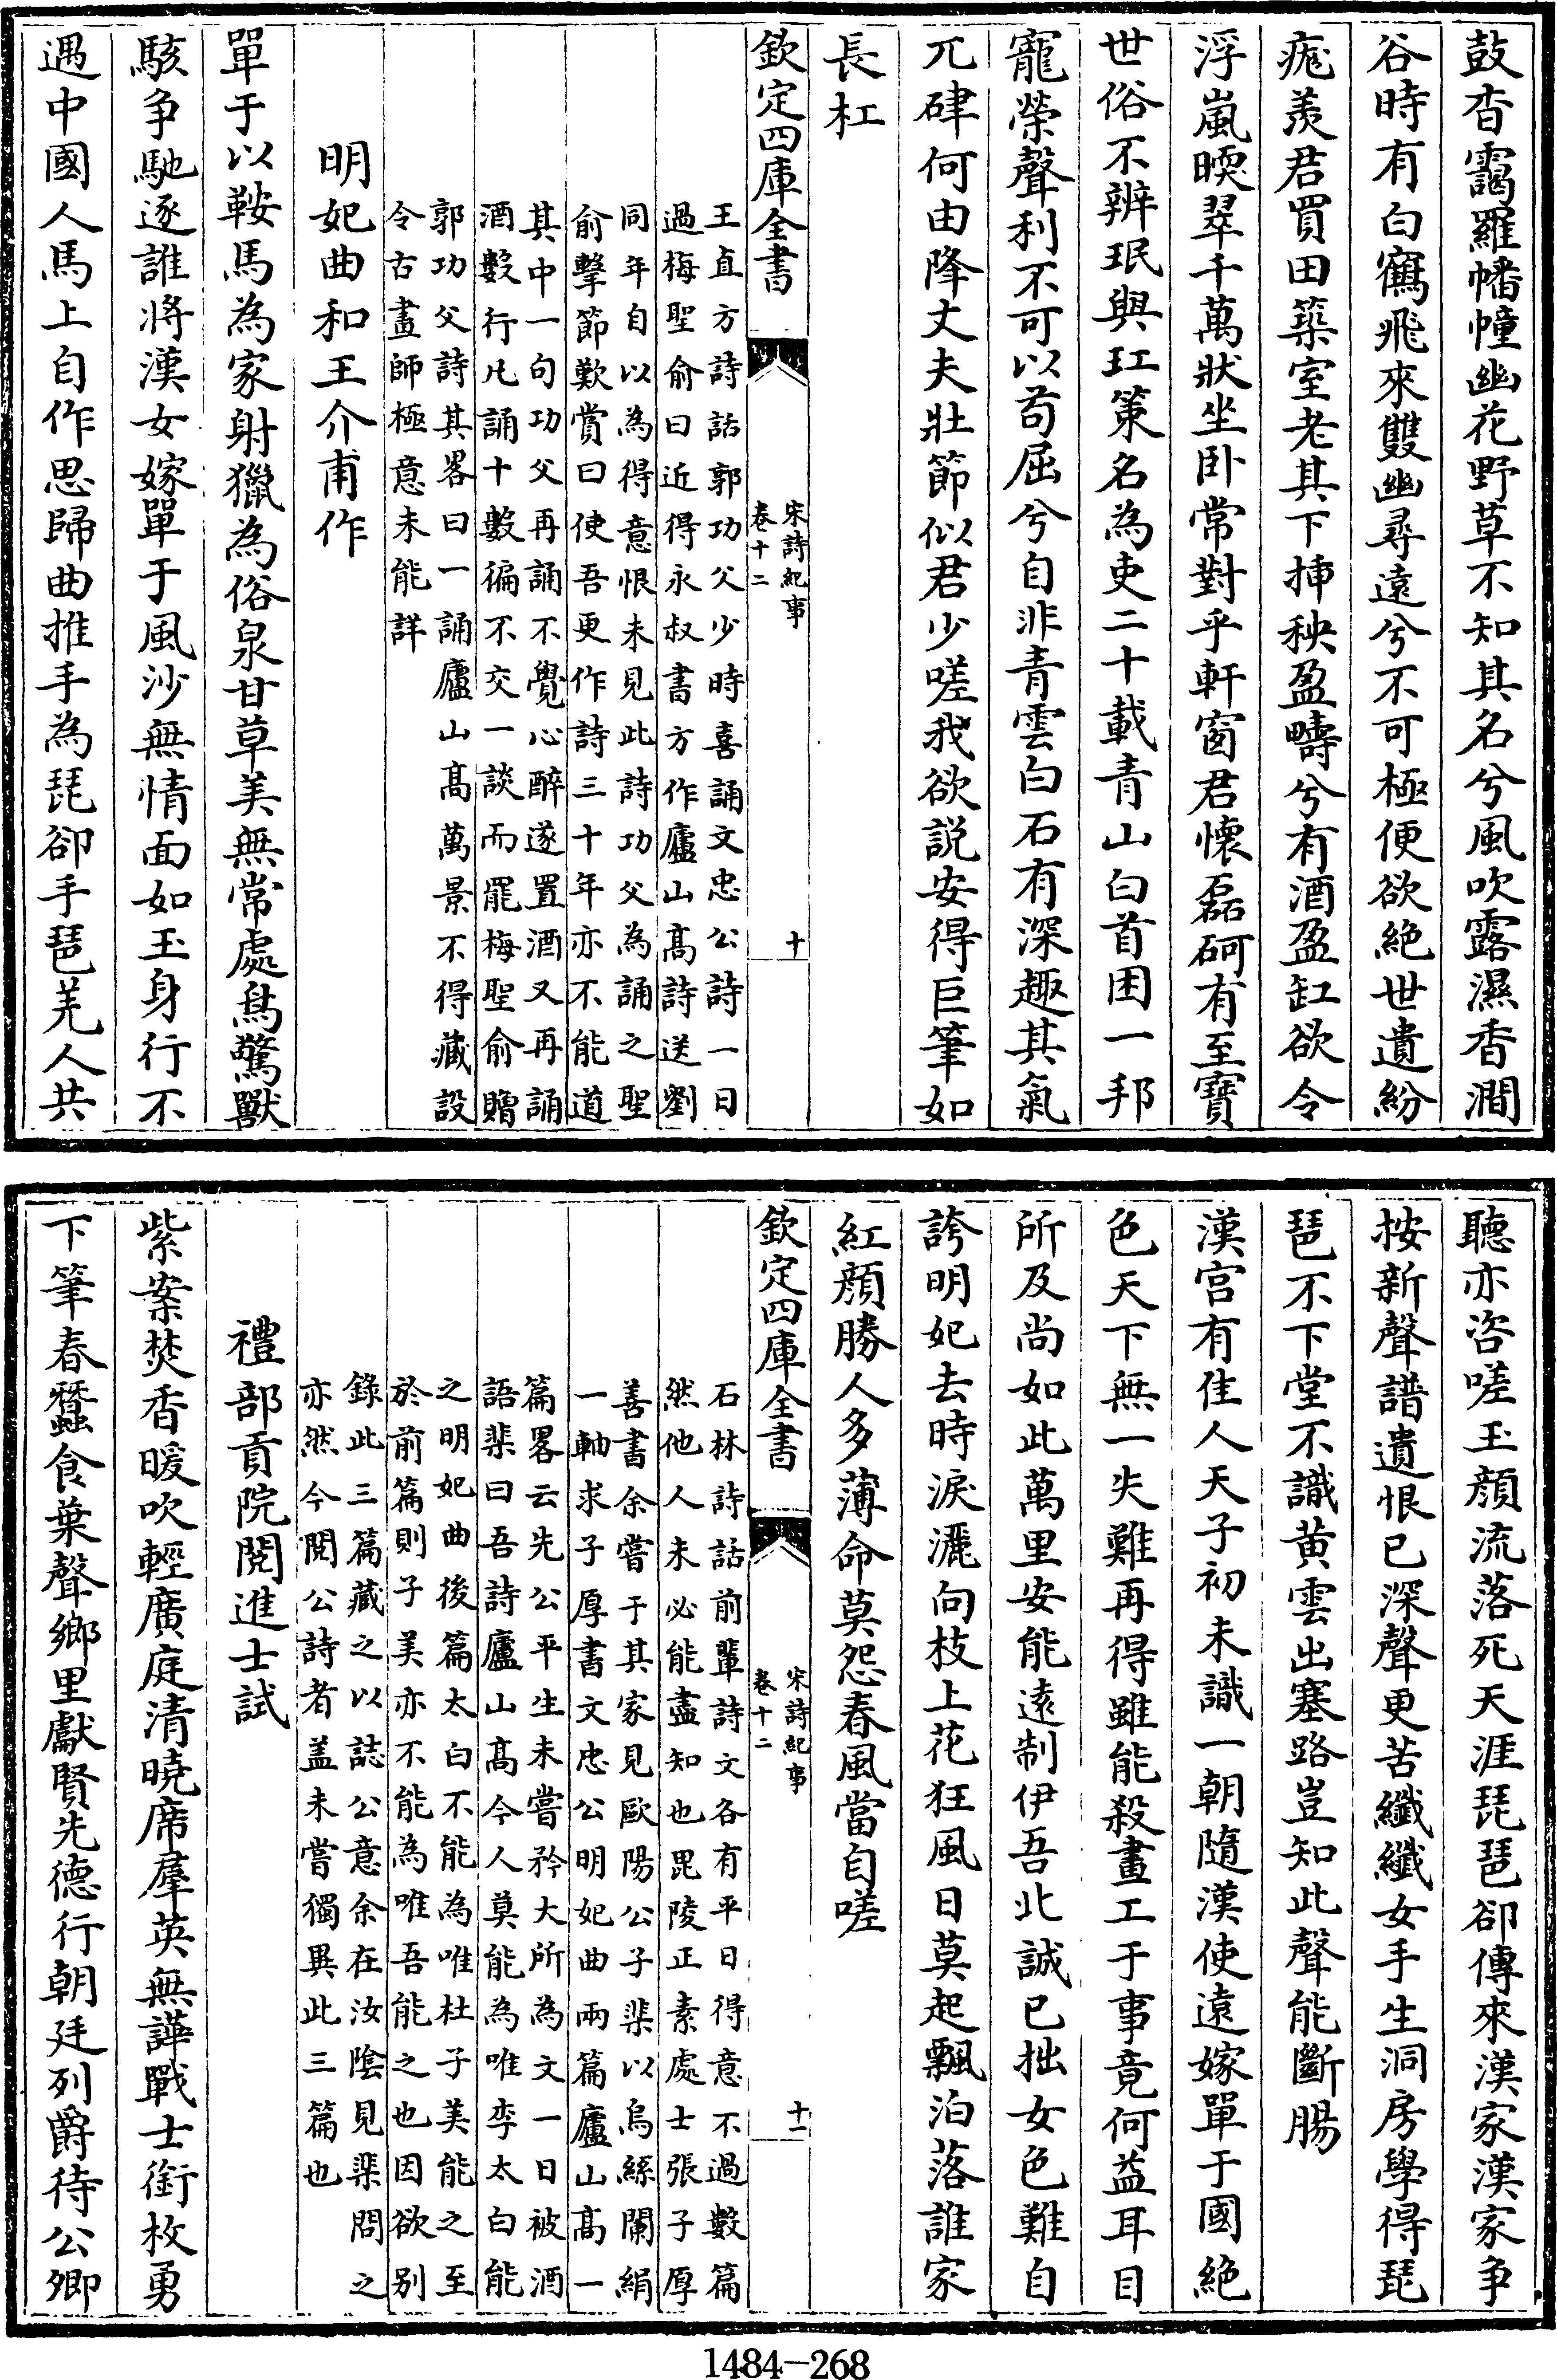 鼓杳靄羅幡幢幽花野草不知其名兮風吹露濕香澗
谷時有白鶴飛來雙幽尋遠兮不可極便欲絶世遺紛
痝羨君買田築室老其下揷秧盈疇兮有酒盈缸欲令
浮嵐曖翠千萬狀坐卧常對乎軒窗君懷磊砢有至寶
世俗不辨珉與玒策名為吏二十載青山白首困一邦
寵榮聲利不可以苟屈兮自非青雲白石有深趣其氣
兀硉何由降丈夫壯節似君少嗟我欲説安得巨筆如
長杠
欽定四庫全書
宋詩紀事
卷十二
十
王直方詩話郭功父少時喜誦文忠公詩一日
過梅聖俞曰近得永叔書方作廬山髙詩送劉
同年自以為得意恨未見此詩功父為誦之聖
俞擊節歎賞曰使吾更作詩三十年亦不能道
其中一句功父再誦不覺心醉遂置酒又再誦
酒數行凡誦十數徧不交一談而罷梅聖俞贈
郭功父詩其畧曰一誦廬山髙萬景不得藏設
令古畫師極意未能詳
明妃曲和王介甫作
單于以鞍馬為家射獵為俗泉甘草美無常處鳥驚獸
駭争馳逐誰將漢女嫁單于風沙無情面如玉身行不
遇中國人馬上自作思歸曲推手為琵卻手琶羌人共
聽亦咨嗟玉顔流落死天涯琵琶卻傳來漢家漢家争
按新聲譜遺恨已深聲更苦纎纎女手生洞房學得琵
琶不下堂不識黄雲出塞路豈知此聲能斷腸
漢宫有佳人天子初未識一朝隨漢使遠嫁單于國絶
色天下無一失難再得雖能殺畫工于事竟何益耳目
所及尚如此萬里安能逺制伊吾北誠已拙女色難自
誇明妃去時淚灑向枝上花狂風日莫起飄泊落誰家
紅顔勝人多薄命莫怨春風當自嗟
欽定四庫全書
宋詩紀事
卷十二
十一
石林詩話前輩詩文各有平日得意不過數篇
然他人未必能盡知也毘陵正素處士張子厚
善書余嘗于其家見歐陽公子棐以烏絲闌絹
一軸求子厚書文忠公明妃曲兩篇廬山髙一
篇畧云先公平生未嘗矜大所為文一日被酒
語棐曰吾詩廬山髙今人莫能為唯李太白能
之明妃曲後篇太白不能為唯杜子美能之至
於前篇則子美亦不能為唯吾能之也因欲别
錄此三篇藏之以誌公意余在汝陰見棐問之
亦然今閲公詩者盖未嘗獨異此三篇也
禮部貢院閲進士試
紫案焚香暖吹輕廣庭清曉席羣英無譁戰士銜枚勇
下筆春蠶食葉聲鄉里獻賢先德行朝廷列爵待公卿
1484-268